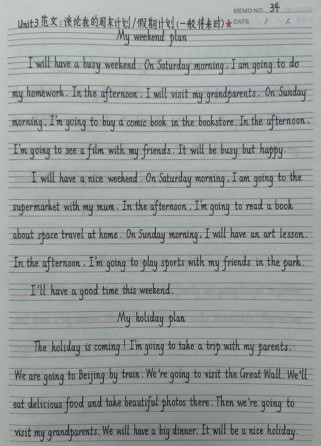 MEMO NO. 34
Unit3 范文：谈论我的周末计划/假期计划(一般将来时)★
DATE / /
My weekend plan
I will have a busy weekend. On Saturday morning, I am going to do
my homework. In the afternoon, I will visit my grandparents. On Sunday
morning, I'm going to buy a comic book in the bookstore. In the afternoon,
I'm going to see a film with my friends. It will be busy but happy.
I will have a nice weekend. On Saturday morning, I am going to the
supermarket with my mum. In the afternoon, I'm going to read a book
about space travel at home. On Sunday morning, I will have an art lesson.
In the afternoon, I'm going to play sports with my friends in the park.
I'll have a good time this weekend.
My holiday plan
The holiday is coming! I'm going to take a trip with my parents.
We are going to Beijing by train. We're going to visit the Great Wall. We'll
eat delicious food and take beautiful photos there. Then we're going to
visit my grandparents. We will have a big dinner. It will be a nice holiday.